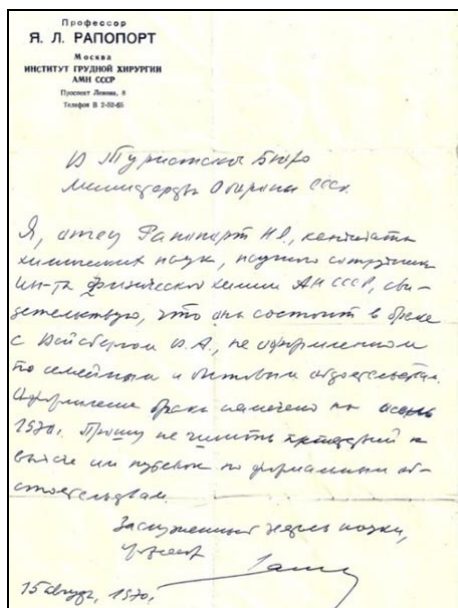 Профессор
Я. Л. РАПОПОРТ
Москва
ИНСТИТУТ ГРУДНОЙ ХИРУРГИИ
АМН СССР
Проспект Ленина, 8
Телефон В 2-52-65
В Туристское Бюро
Министерства Обороны СССР
Я, отец Рапопорт Н.Я., кандидата
химических наук, научного сотрудника
Ин-та физической химии АН СССР, сви-
детельствую, что она состоит в браке
с В.А., не оформленном
по семейным и бытовым обстоятельствам.
Оформление брака намечено на осень
1970г. Прошу не чинить препятствий к
выдаче им путевок по формальным об-
стоятельствам.
Заслуженный деятель науки,
15 1970г